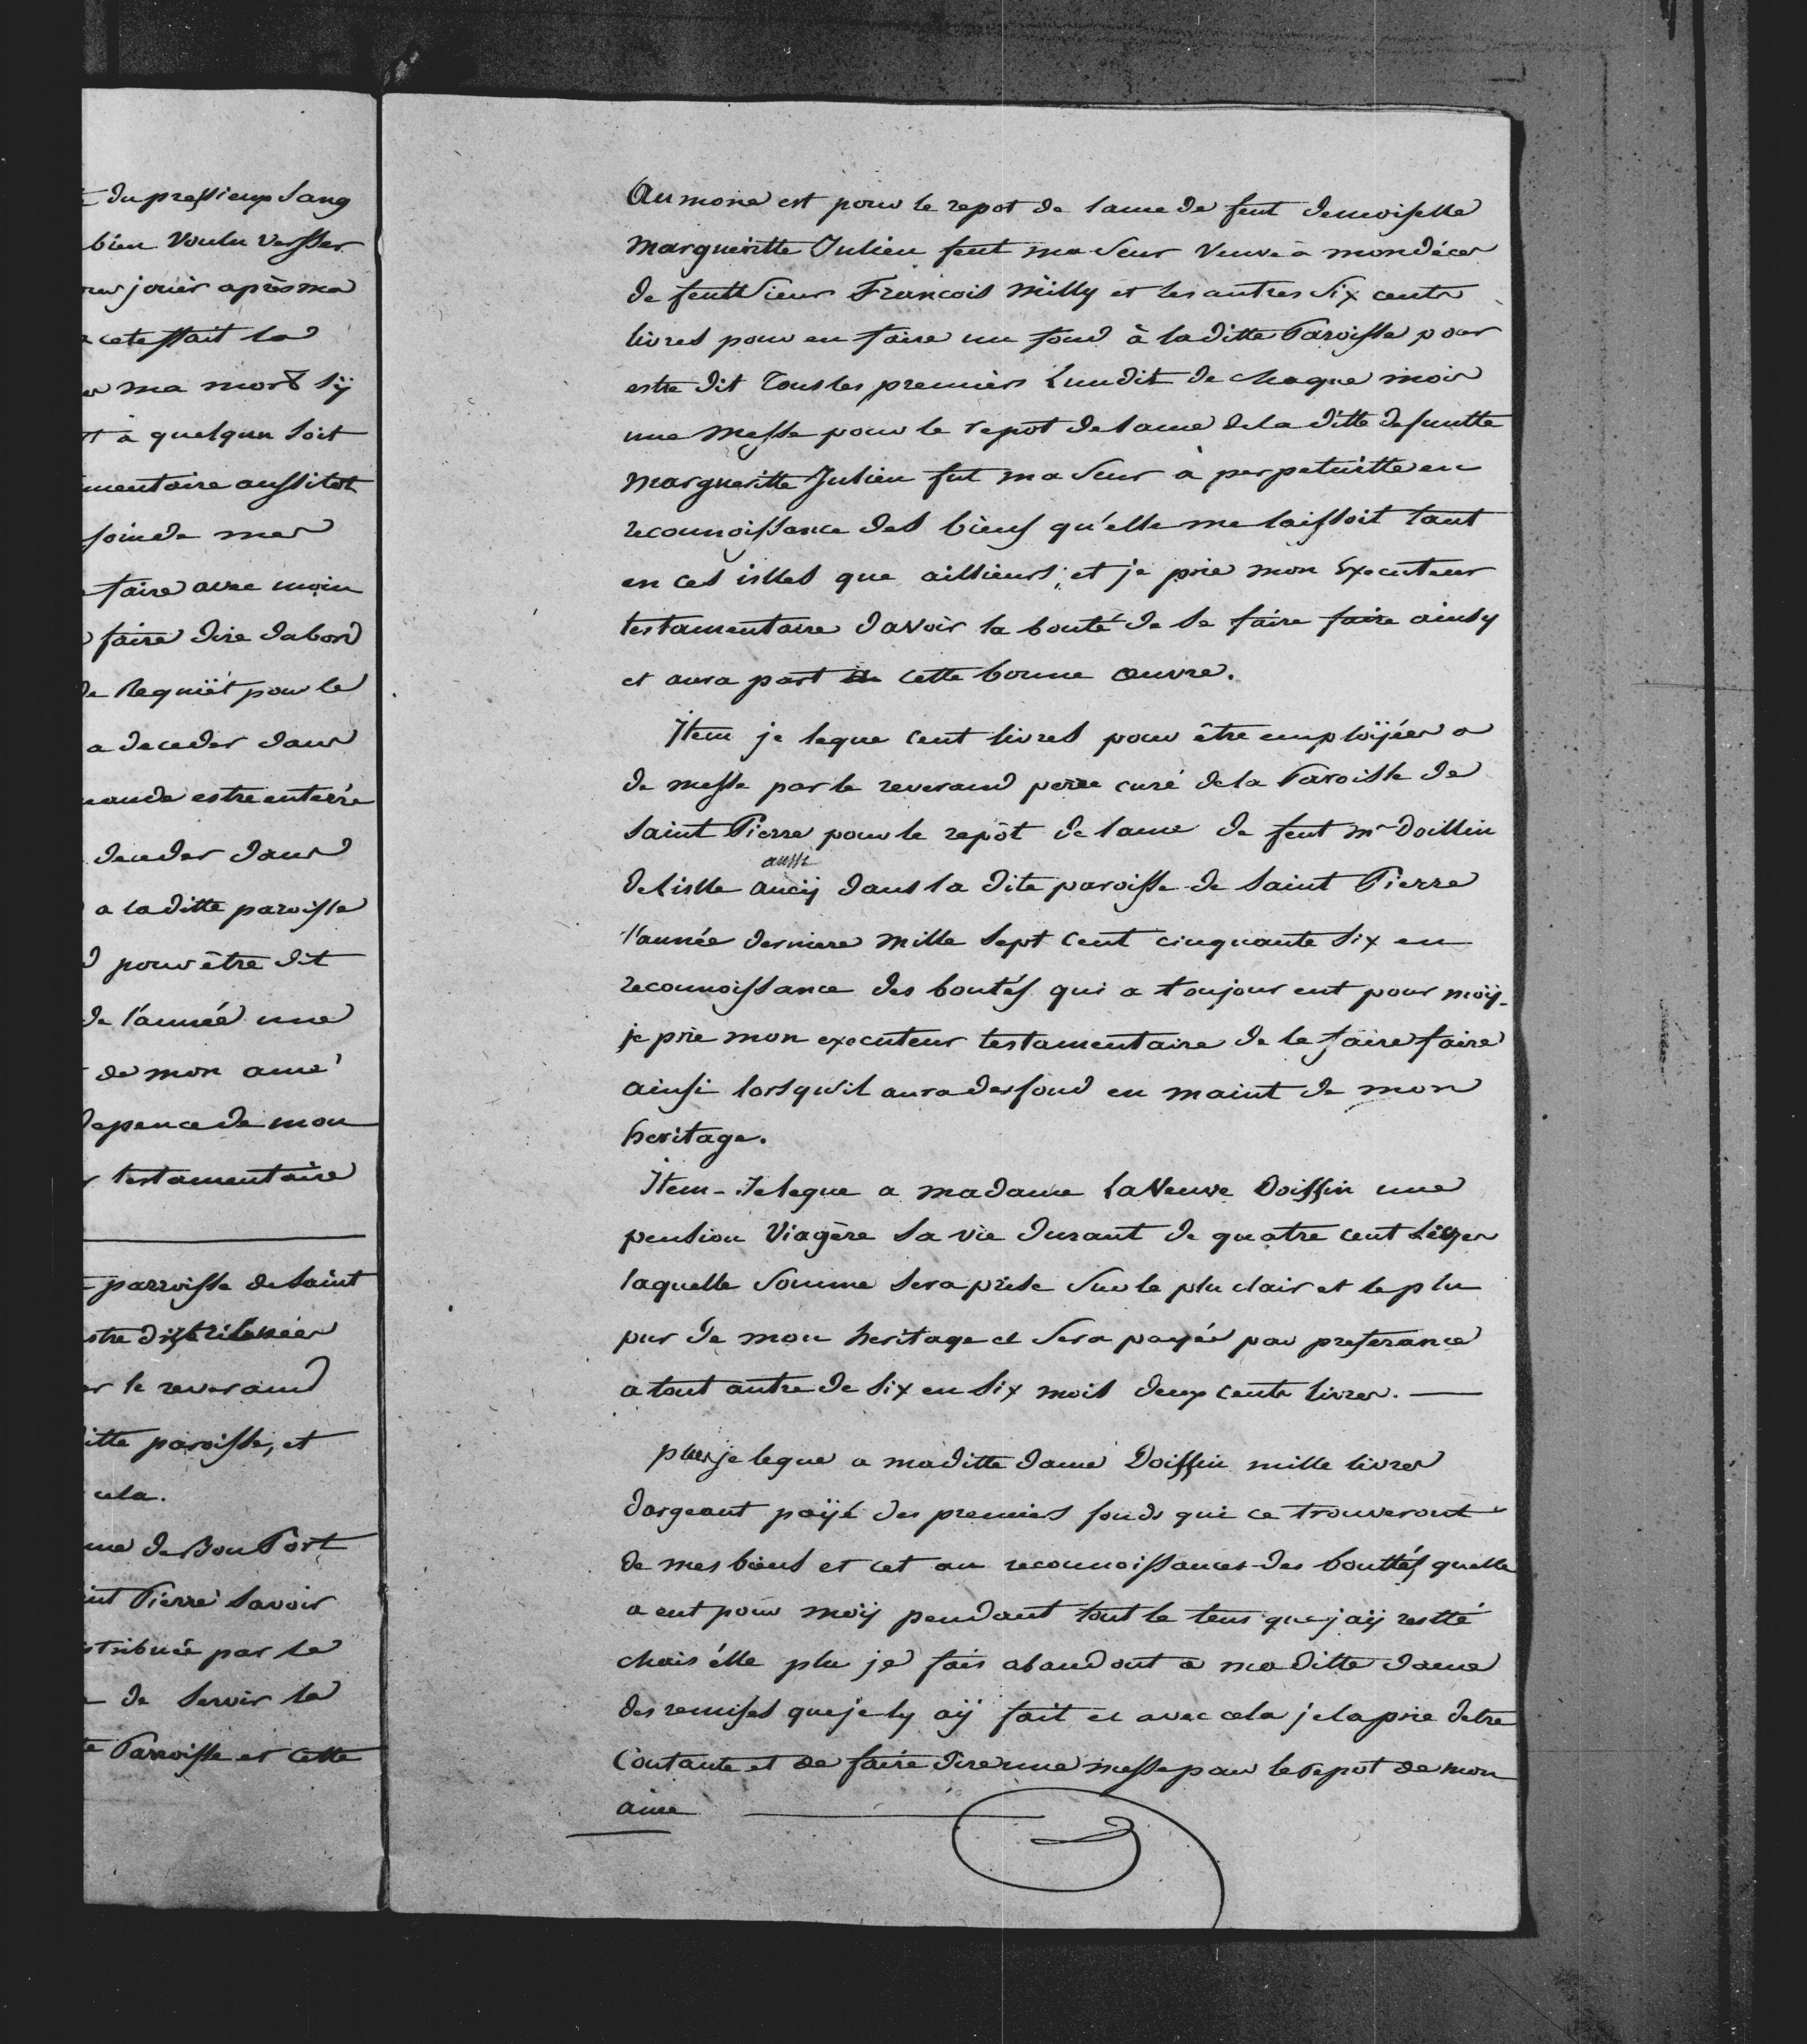 du pressieux sang
bien voulu versser
jouir après ma
cetessait la
ma mort sÿ
à quelqun soit
mentaire aussitot
soin de mes
faire avec moin
faire dire dabord
de Requiët pour le
a deceder dans
mande estre enterré
deceder dans
a laditte paroisse
pour être dit
de l'année une
de mon ame
depence de mon
testamentaire
parroisse de Saint
stre distribuées
le reverand
itte paroisse, et
cela.
me de Bon Port
int Pierre Savoir
stribuée par le
de Servir la
Parroisse et cette
Aumone est pour le repot de lame de feut demoiselle
Margueritte Julien feut ma seur veuve à mon déces
de feut Sieur François Milly et les autres six cents
livres pour en faire un fond à laditte Paroisse pour
estre dit tous les premiers Lundit de chaque mois
une messe pour le repot de lame de la ditte defuntte
Margueritte Julien fut ma seur à perpetuitte en
reconnoissance des biens qu'elle me laissoit tant
en ces isles que aillieurs; et je prie mon Executeur
testamentaire davoir la bonté de se faire faire ainsy
et aura part cette bonne œuvre.
Item je legue cent livres pour être emploÿées a
de messe par le reverand perre curé de la Paroisse de
Saint Pierre pour le repôt de lame de feut Mr Doissin
Delisle aucÿ dans la dite paroisse de Saint Pierre
aussi
l'année derniere mille sept cent cinquante six en
reconnoissance des bontés qui a toujour eut pour moÿ.
je prie mon executeur testamentaire de le faire faire
ainsi lorsqu'il aura des fond en maint de mon
heritage.
Item - Je legue a madame La Veuve Doissin une
pension Viagère sa vie durant de quatre cent Livres
laquelle somme sera prise sur le plu clair et le plu
pur de mon heritage et sera payée par preferance
a tout autre de six en six mois deux cents livres.
plus je legue a maditte dame Doissin mille livres
dargeant paÿé des premiers fonds qui ce trouveront
de mes biens et cet an reconnoissances des bonttés quelle
a eut pour moÿ pendant tout le tems que jaÿ restté
chais élle plu je fais abandont a maditte dame
des remises que je ly aÿ fait et avec cela je la prie detre
Contante et de faire dire une messe pour le repot de mon
ame